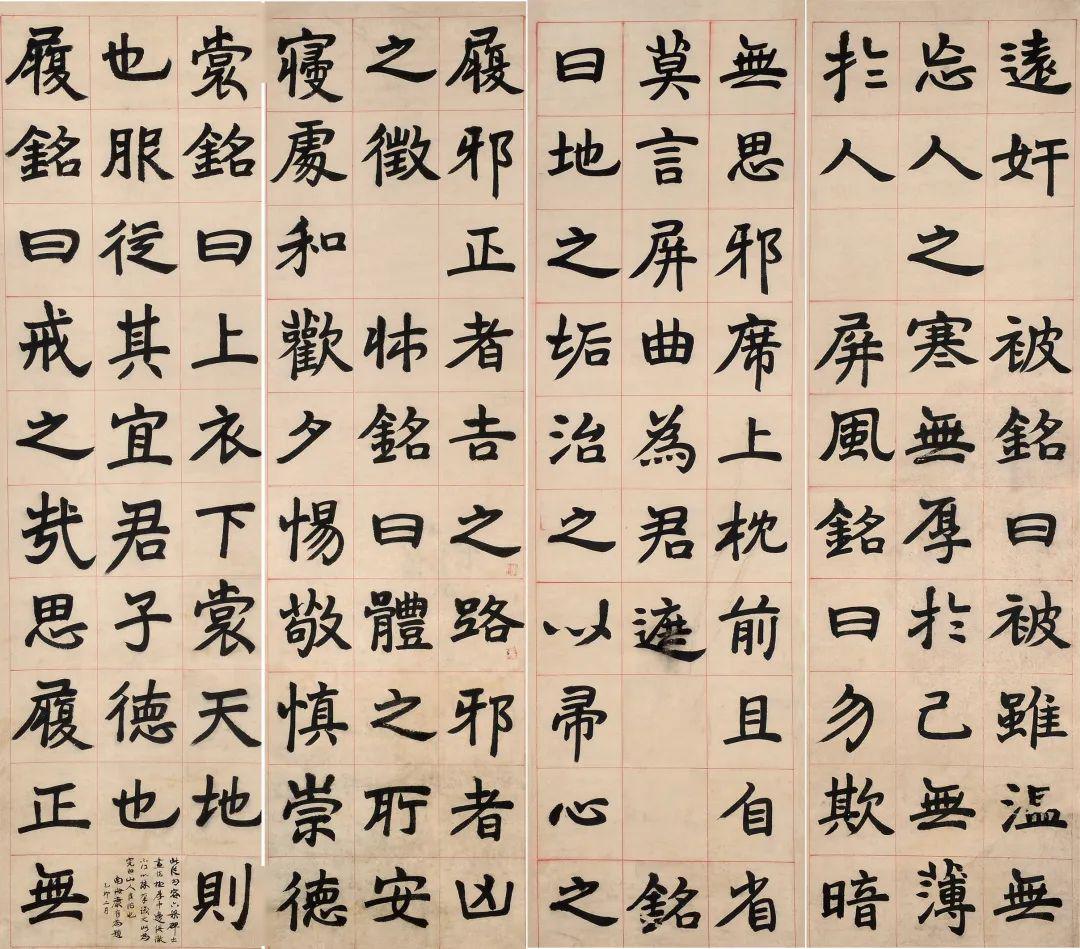 裳銘曰上衣下裳天地則
也服從其宜君子德也
南海康有為題
乙卯二月
履銘曰戒之哉思履正無
履邪正者吉之路邪者凶
之徵 牀銘曰體之所安
寢處和歡夕惕敬慎崇德
遠奸 被銘曰被雖溫無
忘人之寒無厚於己無薄
於人 屏風銘曰勿欺暗
無思邪席上枕前且自省
莫言屏曲為君遮 銘
曰地之垢治之以帚心之